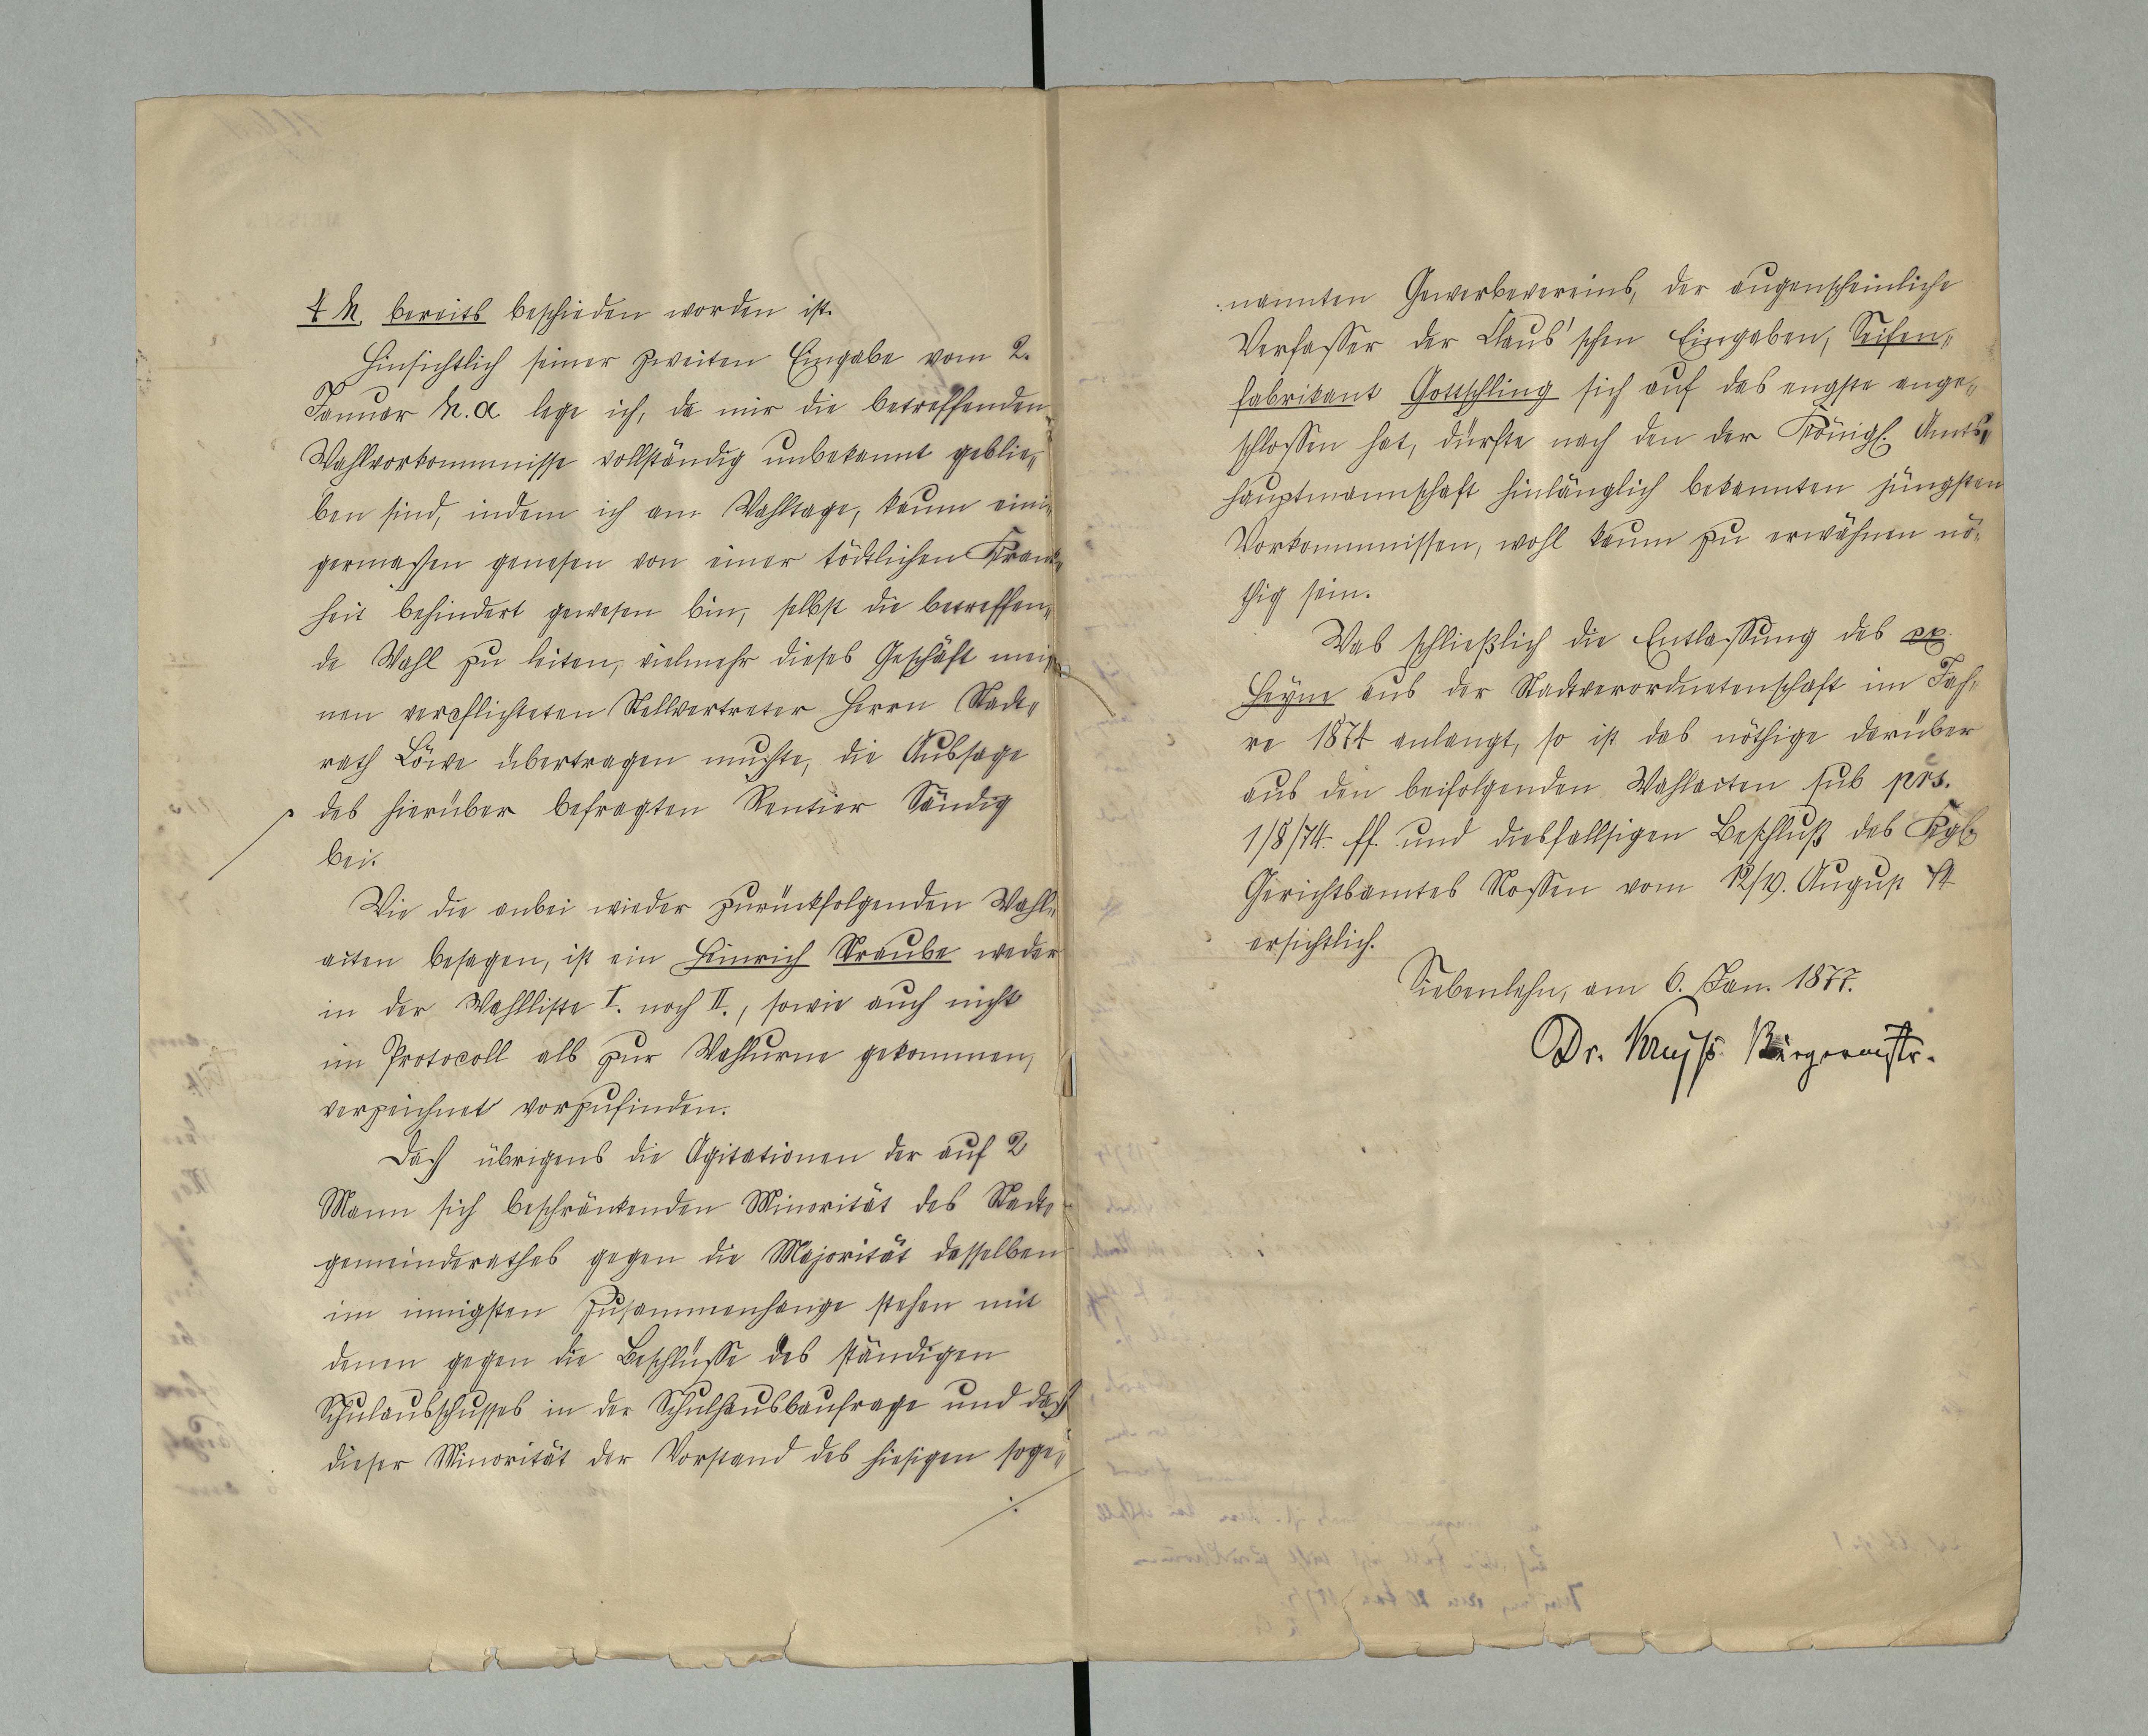 bereits beschieden worden ist.
Hinsichtlich seiner zweiten Eingabe vom 2.
Januar h. a. lege ich, da mir die betreffenden
Wahlvorkommnisse vollständig unbekannt geblie„
ben sind, indem ich am Wahltage, kaum eini„
germassen genesen von einer tödtlichen Krank„
heit behindert gewesen bin, selbst die betreffen„
de Wahl zu leiten, vielmehr dieses Geschäft mei„
nen verpflichteten Stellvertreter Herrn Stadt„
rath Löwe übertragen mußte, die Aussage
des hierüber befragten Rentier Händig
bei.
Wie die anbei wieder zurückfolgenden Wahl„
acten besagen, ist ein Heinrich Straube weder
in der Wahlliste I. noch II., sowie auch nicht
im Protocoll als zur Wahlurne gekommen,
verzeichnet vorzufinden.
Daß übrigens die Agitationen der auf 2
Mann sich beschränkenden Minorität des Stadt„
gemeinderathes gegen die Majorität desselben
im innigsten Zusammenhange stehen mit
denen gegen die Beschlüsse des ständigen
Schulausschusses in der Schulhausbaufrage und daß
dieser Minorität der Vorstand des hiesigen soge„
./.
nannten Gewerbevereins, der augenscheinliche
Verfasser der Claus'schen Eingaben, Seifen„
fabrikant Gottschling sich auf das engste ange„
schlossen hat, dürfte nach den der Königl. Amts„
hauptmannschaft hinlänglich bekannten jüngsten
Vorkommnissen, wohl kaum zu erwähnen nö„
thig sein.
Was schließlich die Entlassung des
Heyne aus der Stadtverordnetenschaft im Jah„
re 1874 anlangt, so ist das nöthige darüber
aus den beifolgenden Wahlacten sub prs.
1/8/74. ff. und diesfallsigen Beschluß des Kgl.
Gerichtsamtes Nossen vom 12/19. August 74
ersichtlich.
Siebenlehn, am 6. Jan. 1877.
Dr. Bürgermstr.